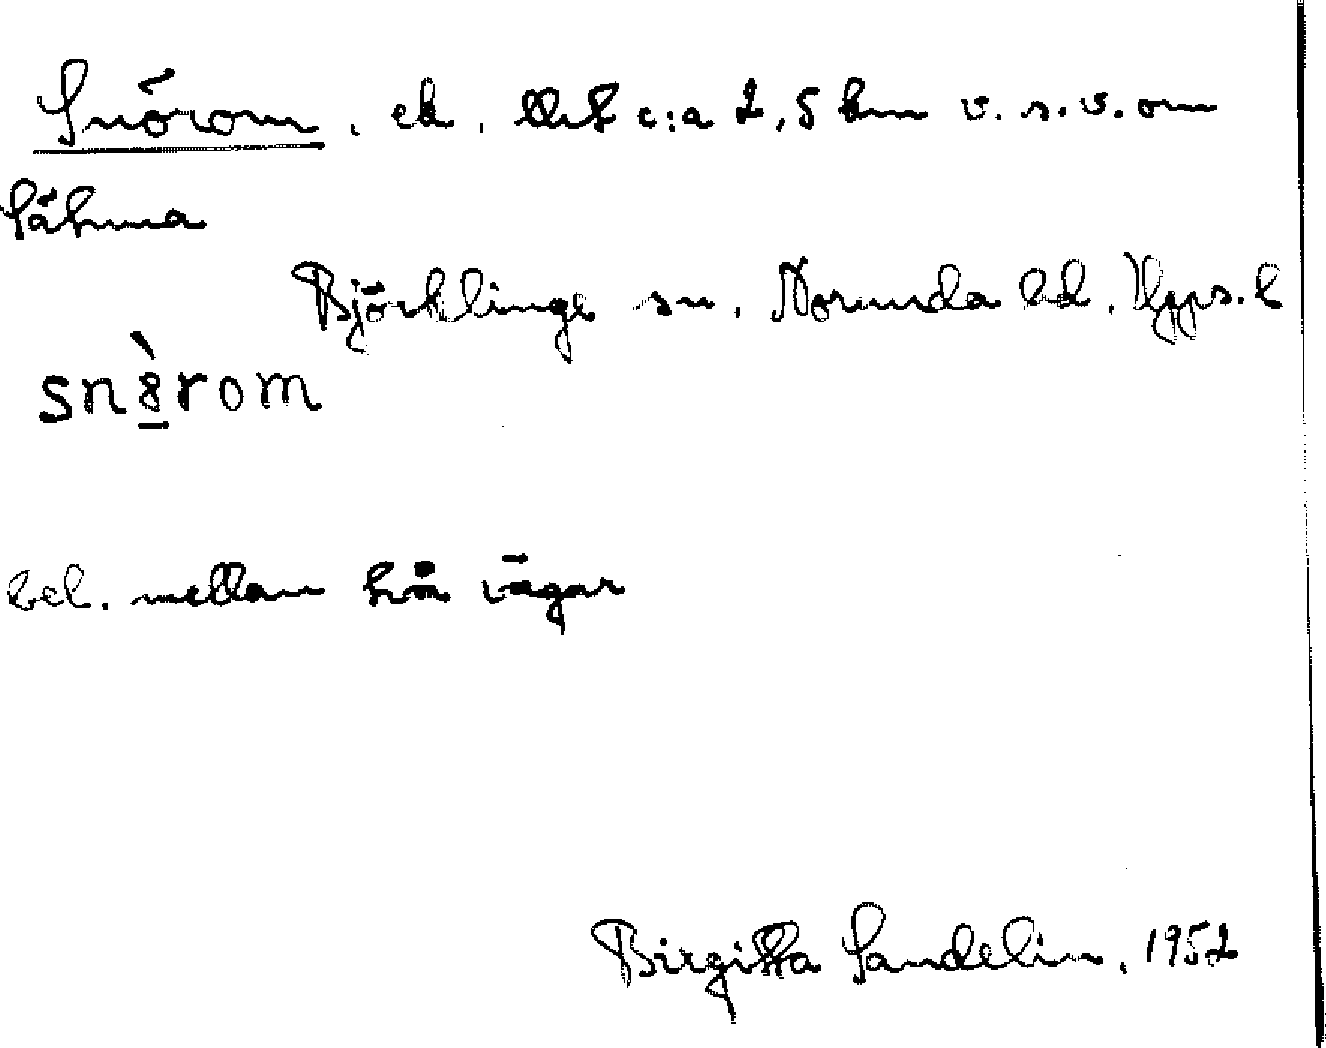 Snörom, ek. c:a 2,5 km v. s.v. om
Sätuna
Björklinge sn, Norunda hd. Upps. l
sn8̀rom
bel. mellan två vägar
Birgitta Sandelin, 1952